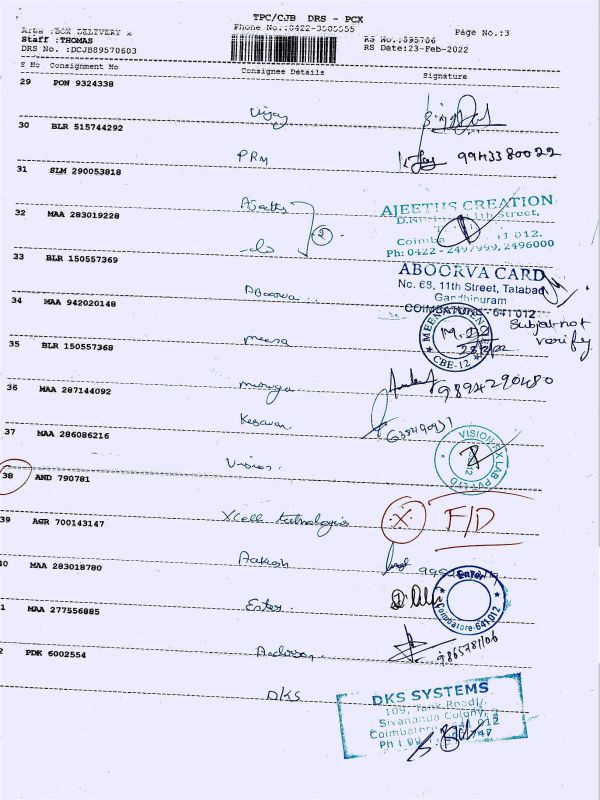 TPC/CJB DRS - PCX
Phone No.:0422-3505555
Area :BOX DELIVERY x
Staff :THOMAS
DRS No. :DCJB89570603
RS No.:895706
RS Date:23-Feb-2022
Page No.:3
S No Consignment No Consignee Details Signature
29 PON 9324338
Vijay
30 BLR 515744292
PRM 9943380022
31 SLM 290053818
AJEETHS CREATION
11th Street,
Coimba 012.
Ph: 0422 - 2497999, 2496000
32 MAA 283019228
do 2
33 BLR 150557369
Aboorva
ABOORVA CARD
No. 68, 11th Street, Tatabad
Gandhipuram
COIMBATORE - 641 012
34 MAA 942020148
Meena
MEEN
CBE-12
Subject not
verify
35 BLR 150557368
Muruga 9894290480
36 MAA 287144092
Kesavan
37 MAA 286086216
Vision
VISION RX LAB PVT LTD
38 AND 790781
Xcell Technologies X F/D
39 AGR 700143147
Aakash
0 MAA 283018780
Ester
Ester
Coimbatore-641 012
1 MAA 277556885
9865781106
2 PDK 6002554
DKS
DKS SYSTEMS
109, Tank Road,
Sivananda Colony,
Coimbatore - 641 012